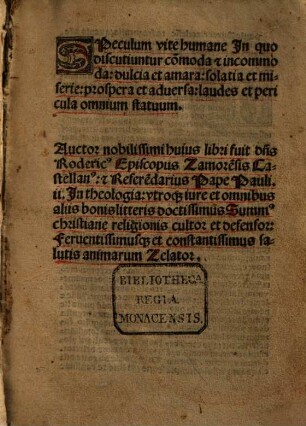 SPeculum vite humane In quo
discutiuntur cōmoda & incommo
da: dulcia et amara: solatia et mi
serie: prospera et aduersa: laudes et peri
cula omnium statuum.
Auctor nobilissimi huius libri fuit dn̄s
Rodericꝰ Episcopus Zamorēsis Ca
stellanꝰ: & Referēdarius Pape Pauli.
ii. In theologia: vtroqꝫ iure et omnibus
aliis bonis litteris doctissimus Summꝰ
christiane religionis cultor et defensor:
Feruentissimusqꝫ et constantissimus sa
lutis animarum Zelator.
BIBLIOTHECA
REGIA
MONACENSIS.